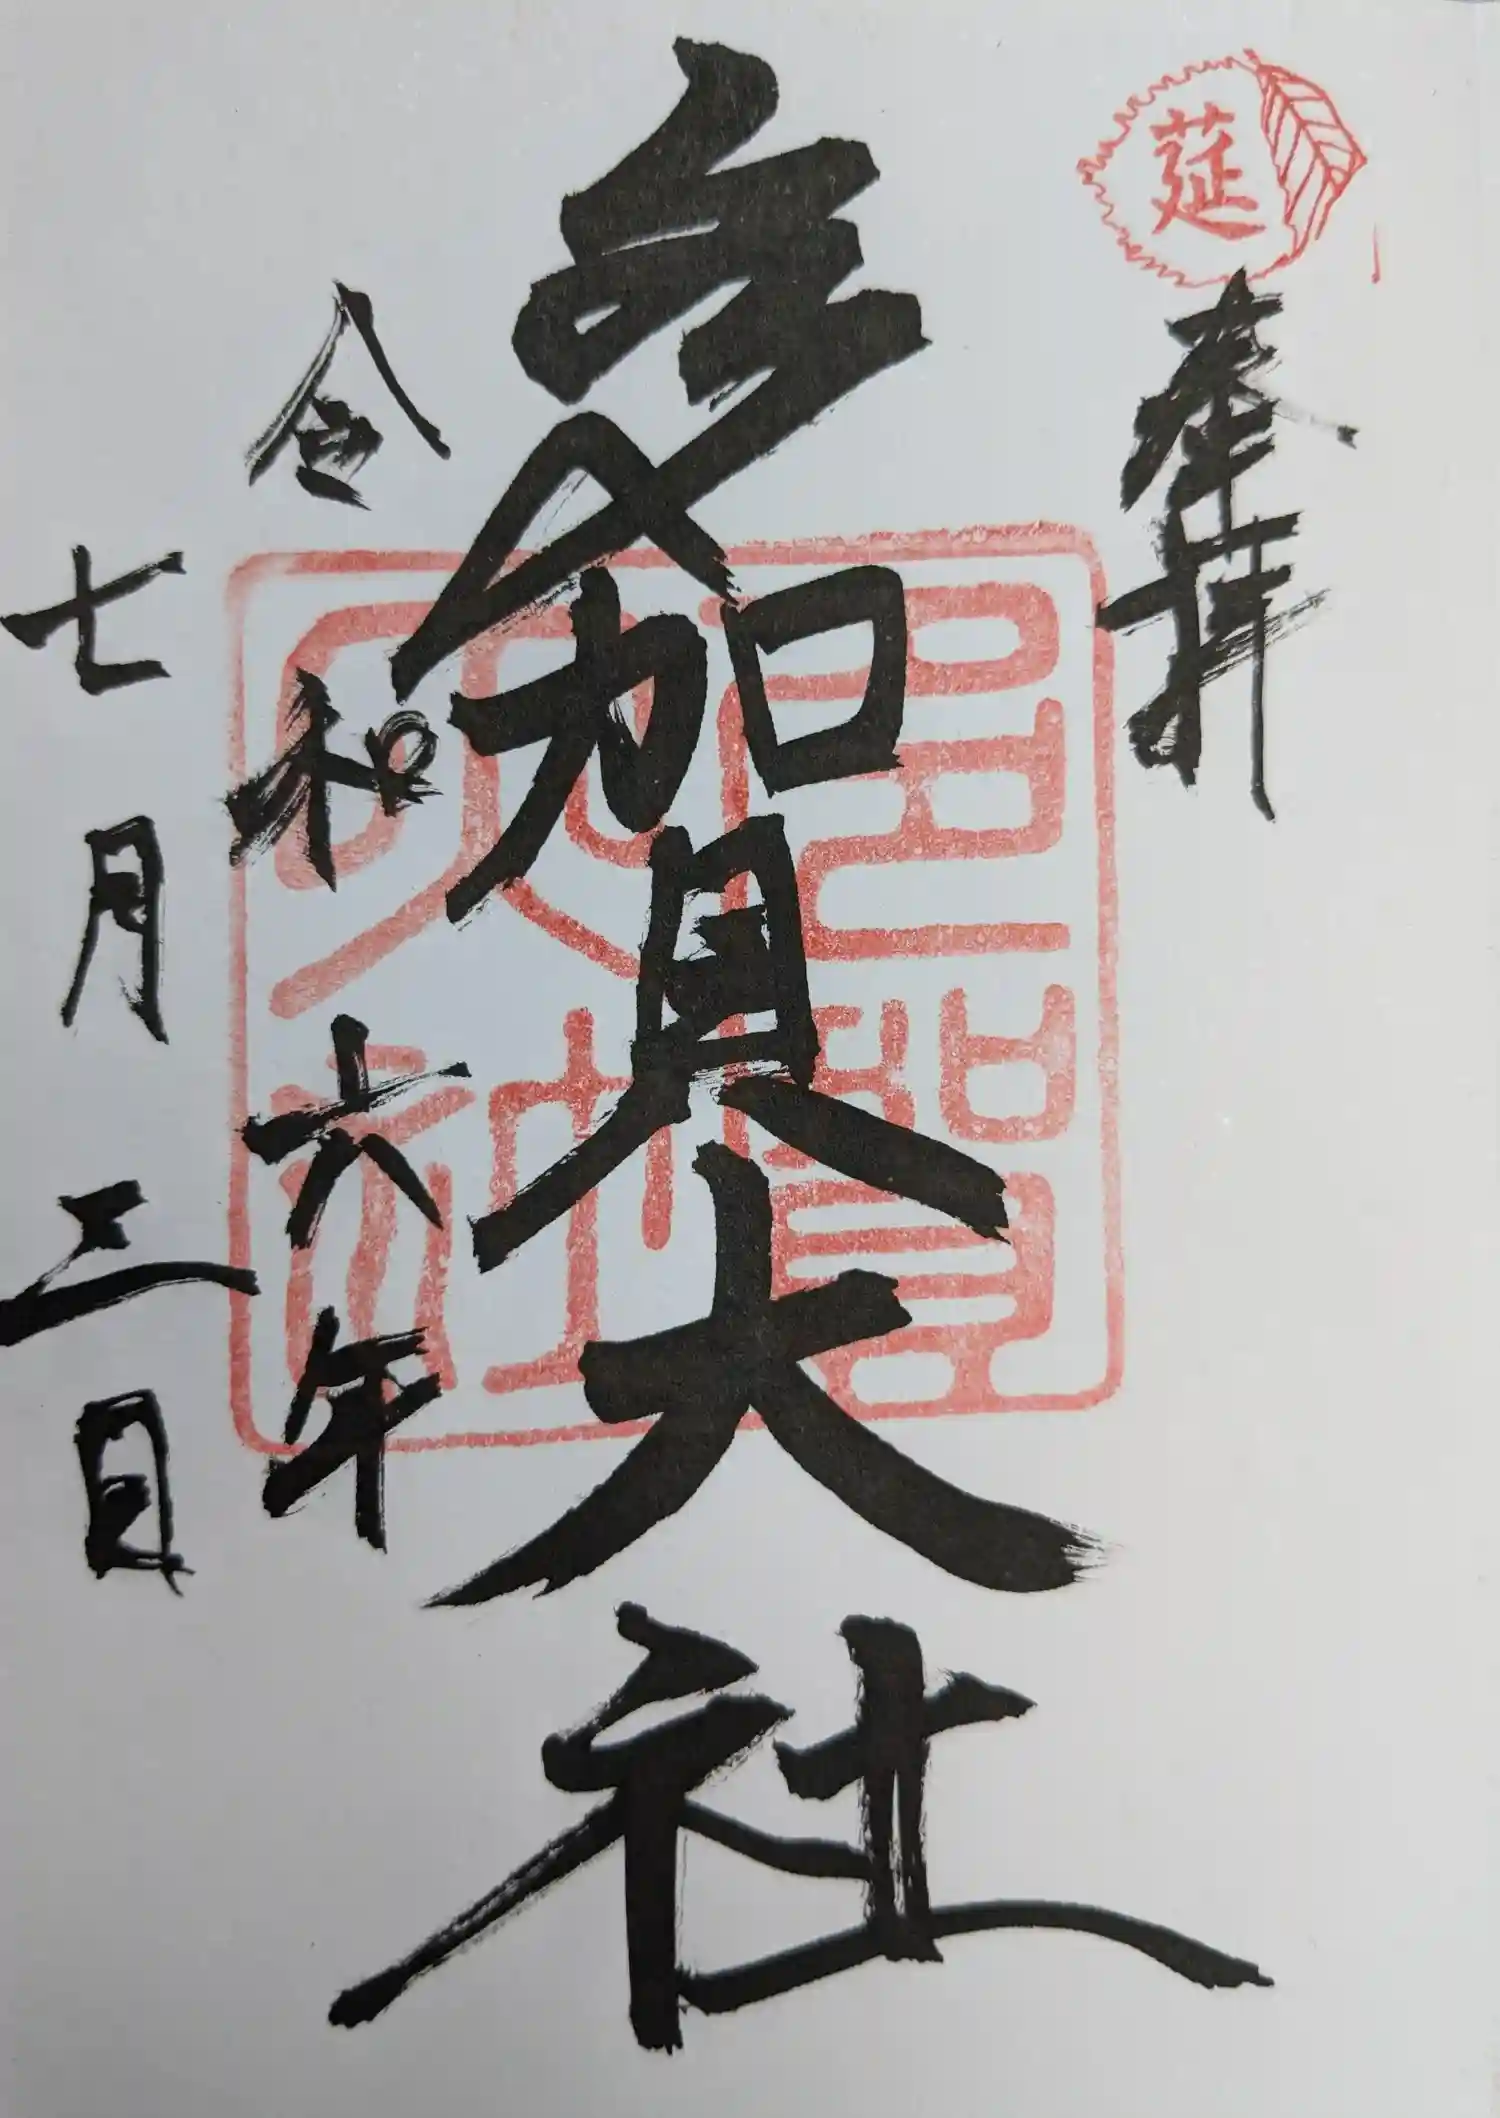 莚
奉拝
多賀大社
多賀大社
令和六年
七月三日